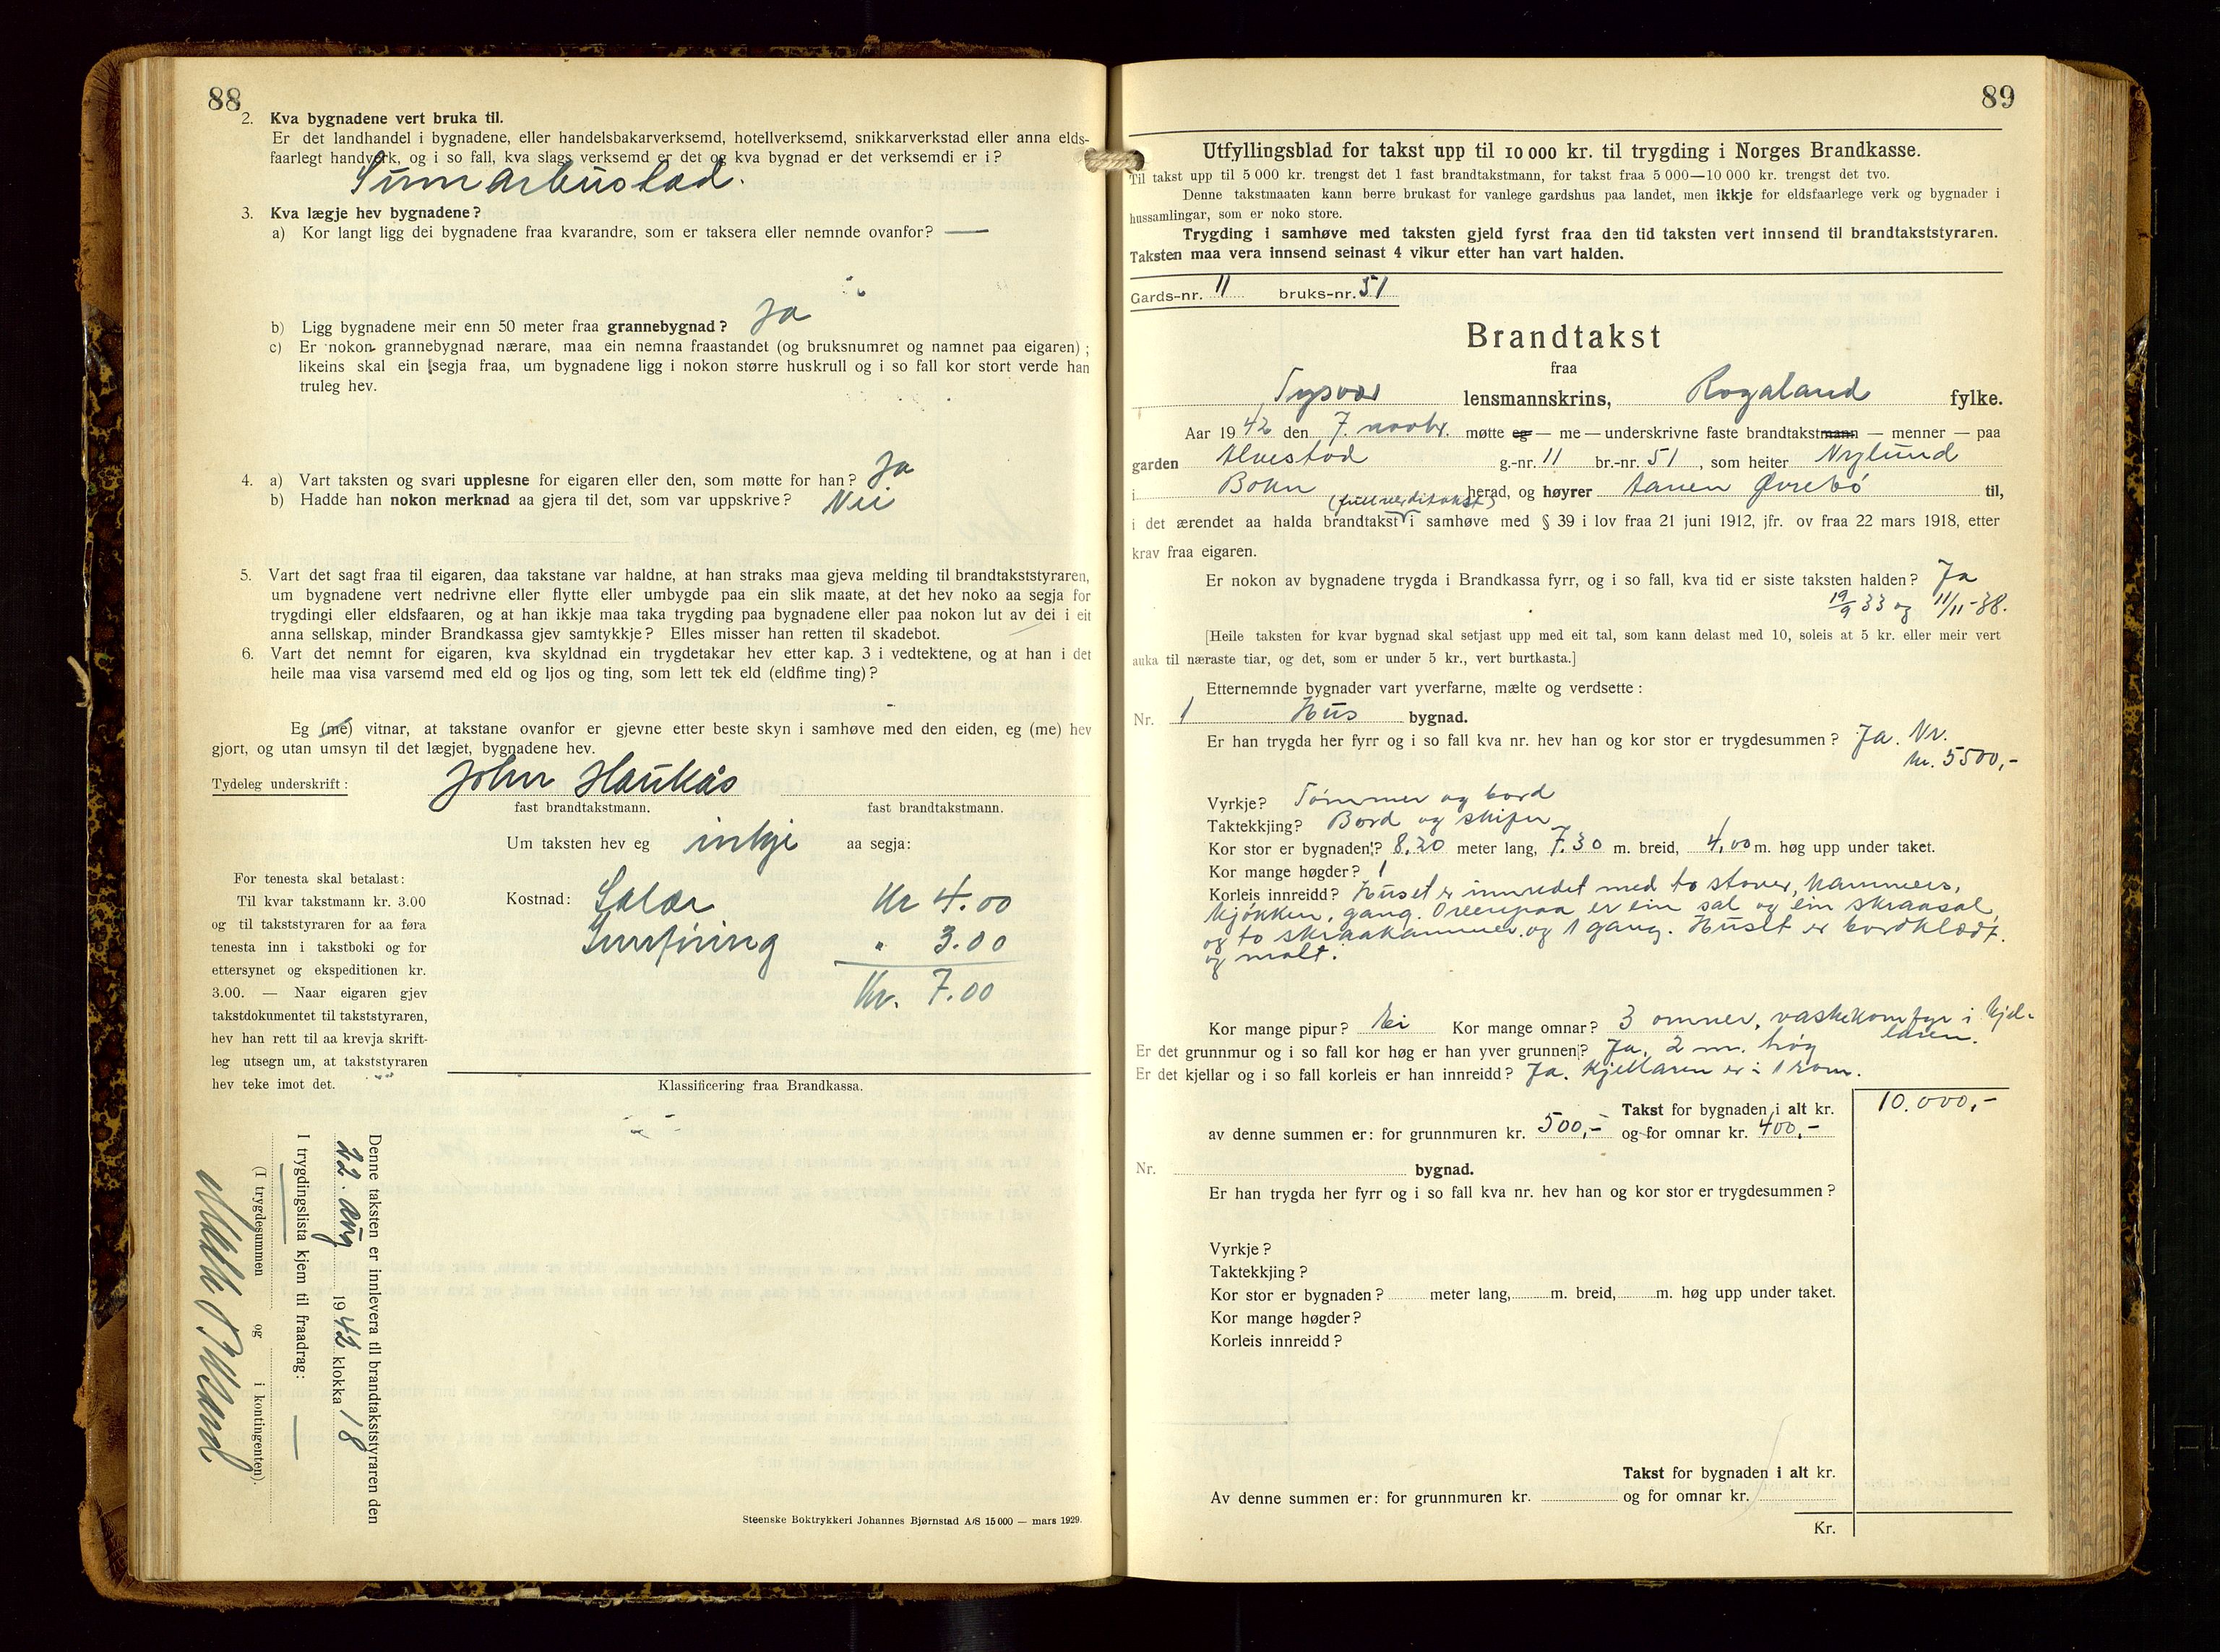 88
2. Kva bygnadene vert bruka til.
Er det landhandel i bygnadene, eller handelsbakarverksemd, hotellverksemd, snikkarverkstad eller anna elds-
faarlegt handverk, og i so fall, kva slags verksemd er det og kva bygnad er det verksemdi er i?
Sumarbustad.
3. Kva lægje hev bygnadene?
a) Kor langt ligg dei bygnadene fraa kvarandre, som er taksera eller nemnde ovanfor? —
b) Ligg bygnadene meir enn 50 meter fraa grannebygnad? Ja
c) Er nokon grannebygnad nærare, maa ein nemna fraastandet (og bruksnumret og namnet paa eigaren) ;
likeins skal ein segja fraa, um bygnadene ligg i nokon større huskrull og i so fall kor stort verde han
truleg hev.
4. a) Vart taksten og svari upplesne for eigaren eller den, som møtte for han? Ja
b) Hadde han nokon merknad aa gjera til det, som var uppskrive? Nei
5. Vart det sagt fraa til eigaren, daa takstane var haldne, at han straks maa gjeva melding til brandtakststyraren,
um bygnadene vert nedrivne eller flytte eller umbygde paa ein slik maate, at det hev noko aa segja for
trygdingi eller eldsfaaren, og at han ikkje maa taka trygding paa bygnadene eller paa nokon lut av dei i eit
anna sellskap, minder Brandkassa gjev samtykkje? Elles misser han retten til skadebot.
6. Vart det nemnt for eigaren, kva skyldnad ein trygdetakar hev etter kap. 3 i vedtektene, og at han i det
heile maa visa varsemd med eld og ljos og ting, som lett tek eld (eldfime ting)?
Eg (me) vitnar, at takstane ovanfor er gjevne etter beste skyn i samhøve med den eiden, eg (me) hev
gjort, og utan umsyn til det lægjet, bygnadene hev.
Tydeleg underskrift: John Haukås
fast brandtakstmann. fast brandtakstmann.
Um taksten hev eg inkje aa segja:
For tenesta skal betalast:
Til kvar takstmann kr. 3.00
og til takststyraren for aa føra
tenesta inn i takstboki og for
ettersynet og ekspeditionen kr.
3.00. — Naar eigaren gjev
takstdokumentet til takststyraren,
hev han rett til aa krevja skrift-
leg utsegn um, at takststyraren
hev teke imot det.
Kostnad: Salær Kr 4.00
Innføring " 3.00
Kr. 7.00
Klassificering fraa Brandkassa.
Denne taksten er innlevera til brandtakststyraren den
22. aug 1942 klokka 18
I trygdingslista kjem til fraadrag: —
(I trygdesummen og i kontingenten).
Steenske Boktrykkeri Johannes Bjørnstad A/S 15 000 — mars 1929.
89
Utfyllingsblad for takst upp til 10 000 kr. til trygding i Norges Brandkasse.
Til takst upp til 5 000 kr. trengst det 1 fast brandtakstmann, for takst fraa 5 000—10 000 kr. trengst det tvo.
Denne takstmaaten kann berre brukast for vanlege gardshus paa landet, men ikkje for eldsfaarlege verk og bygnader i
hussamlingar, som er noko store.
Trygding i samhøve med taksten gjeld fyrst fraa den tid taksten vert innsend til brandtakststyraren.
Taksten maa vera innsend seinast 4 vikur etter han vart halden.
Gards-nr. 11 bruks-nr. 51
Brandtakst
fraa
Tysvær lensmannskrins, Rogaland fylke.
Aar 1942 den 7. novbr. møtte eg — me — underskrivne faste brandtakstmann — menner — paa
garden Alvestad g.-nr. 11 br.-nr. 51, som heiter Nylund
i Bokn herad, og høyrer Aanen Øvrebö til,
(fullverditakst)
i det ærendet aa halda brandtakst i samhøve med § 39 i lov fraa 21 juni 1912, jfr. ov fraa 22 mars 1918, etter
krav fraa eigaren.
Er nokon av bygnadene trygda i Brandkassa fyrr, og i so fall, kva tid er siste taksten halden? Ja
19/9 33 og 11/11-38.
[Heile taksten for kvar bygnad skal setjast upp med eit tal, som kann delast med 10, soleis at 5 kr. eller meir vert
auka til næraste tiar, og det, som er under 5 kr., vert burtkasta.]
Etternemnde bygnader vart yverfarne, mælte og verdsette :
Nr. 1 Hus bygnad.
Er han trygda her fyrr og i so fall kva nr. hev han og kor stor er trygdesummen? Ja. Nr.
kr. 5500,-
Vyrkje? Tømmer og bord
Taktekkjing? Bord og skifer
Kor stor er bygnaden? 8.20 meter lang, 7.30 m. breid, 4,00 m. høg upp under taket.
Kor mange høgder? 1
Korleis innreidd? Huset er innredet med to stover, kammers,
kjøkken, gang. Ovenpaa er ein sal og ein skraasal,
og to skraakammer og 1 gang. Huset er bordklædt
og malt.
Kor mange pipur? Ei Kor mange omnar? 3 omner, vaskekomfyr i kjel-
laren.
Er det grunnmur og i so fall kor høg er han yver grunnen? Ja, 2 m. høg
Er det kjellar og i so fall korleis er han innreidd? Ja. Kjellaren er i 1 rom.
Takst for bygnaden i alt kr. 10.000,-
av denne summen er: for grunnmuren kr. 500,- og for omnar kr. 400,-
Nr. bygnad.
Er han trygda her fyrr og i so fall kva nr. hev han og kor stor er trygdesummen?
Vyrkje?
Taktekkjing?
Kor stor er bygnaden? meter lang, m. breid, m. høg upp under taket.
Kor mange høgder?
Korleis innreidd?
Takst for bygnaden i alt kr.
Av denne summen er: for grunnmuren kr. og for omnar kr.
Kr.